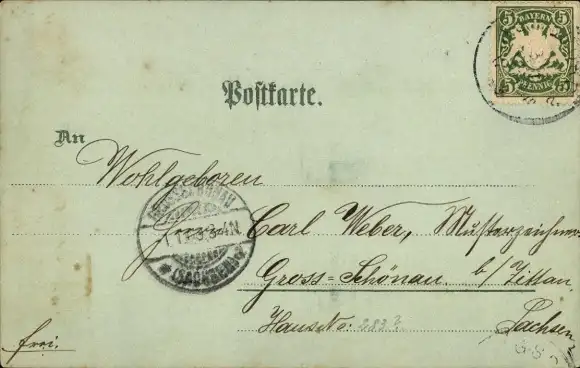 5 BAYERN 5
5 PFENNIG 5
Postkarte.
An
Wohlgeboren
Herrn Carl Weber, Musterzeichner
Gross=Schönau b/Zittau
Haus No: 283? Sachsen
frei.
GROSSSCHÖNAU
(SACHSEN)